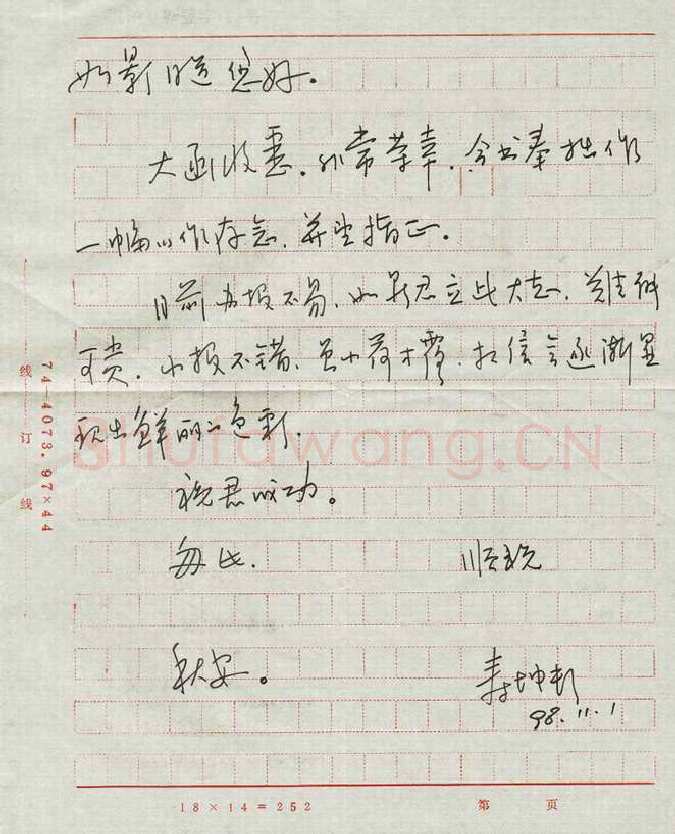 如影 您好。
大函收悉,非常荣幸,今书奉拙作
一幅以作存念,并望指正。
目前办报不易,如影君立此大志,难能
可贵,小报不错,虽小荷才露,相信会逐渐显
现出鲜丽的色彩,
祝君成功。
匆此. 顺祝
秋安。
98.11.1
线
订
线
74-4073.97×44
18×14=252 第 页
Shufawang.CN